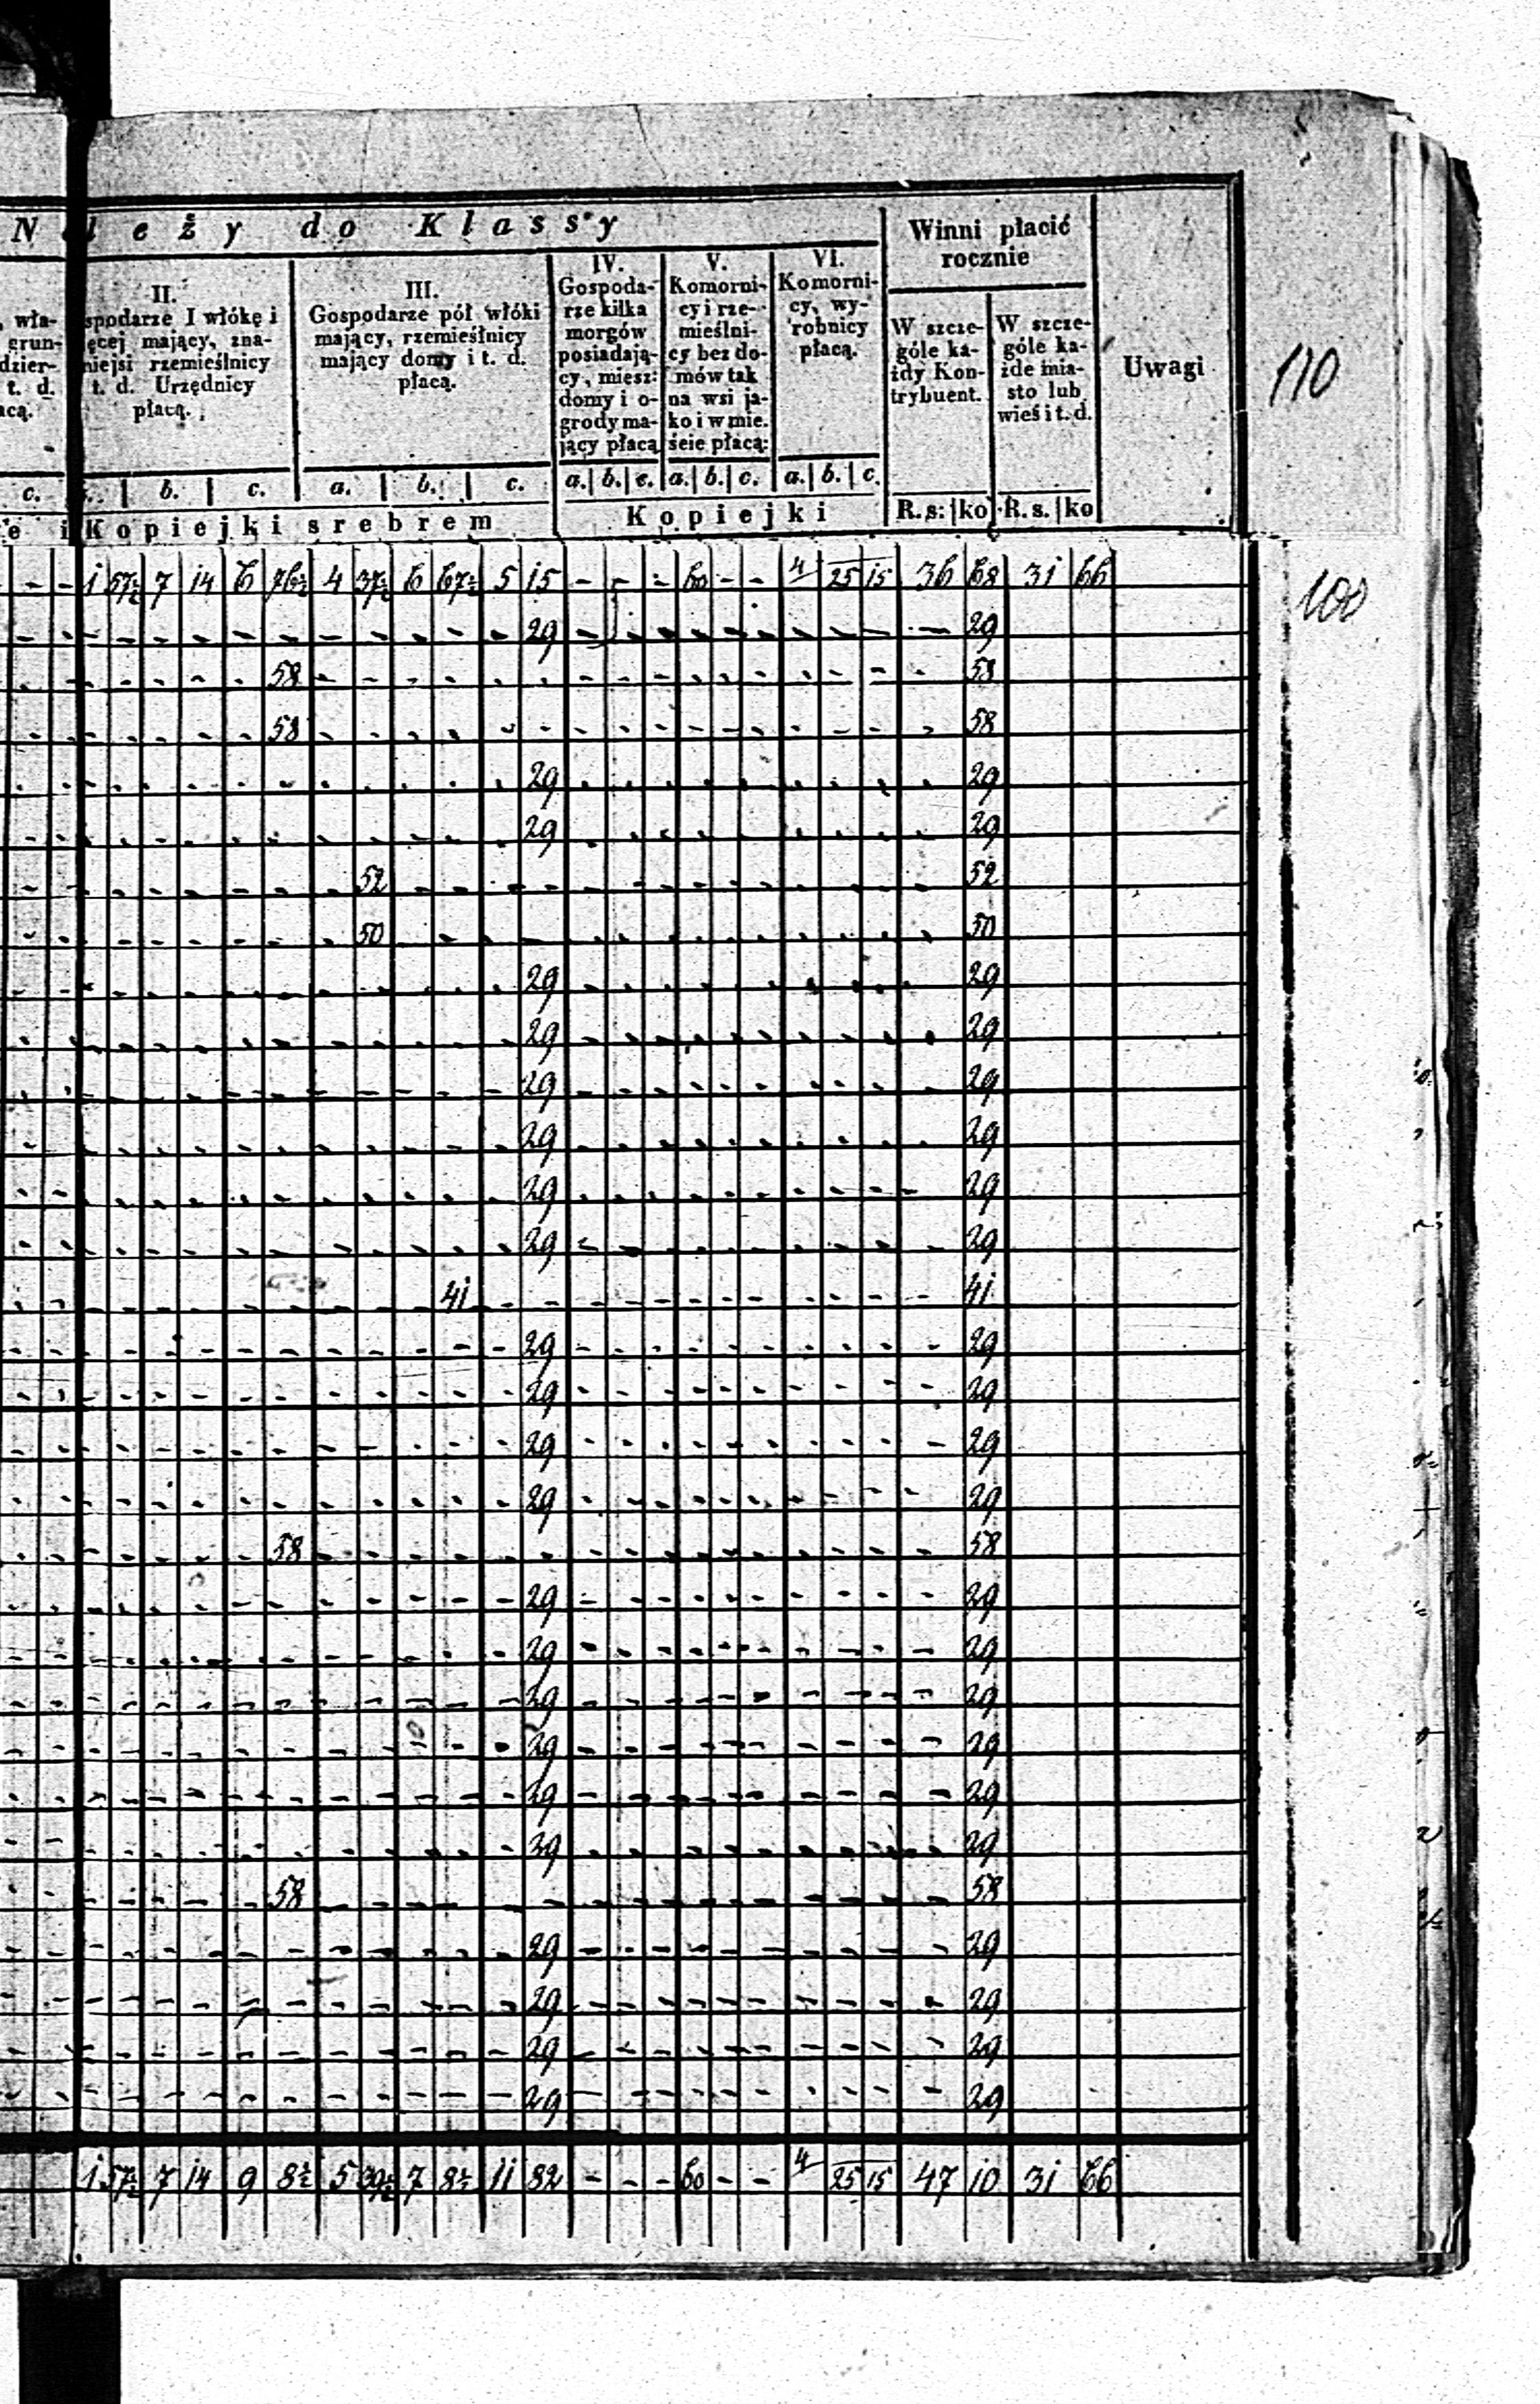 Należy do Klassy
Winni płacić rocznie
Uwagi
110
, wła-
grun-
dzier-
t. d.
acą.
II.
spodarze I włókę i
ęcej mający, zna-
niejsi rzemieślnicy
t. d. Urzędnicy
płacą.
III.
Gospodarze pół włóki
mający, rzemieślnicy
mający domy i t. d.
płacą.
IV.
Gospoda-
rze kilka
morgów
posiadają-
cy, miesz:
domy i o-
grody ma-
jący płacą
V.
Komorni-
cy i rze-
mieślni-
cy bez do-
mów tak
na wsi ja-
ko i w mie.
ście płacą:
VI.
Komorni-
cy, wy-
robnicy
płacą.
W szcze-
góle ka-
żdy Kon-
trybuent.
W szcze-
góle ka-
żde mia-
sto lub
wieś i t. d.
c. b. c. a. b. c. a. b. c. a. b. c. a. b. c.
e i Kopiejki srebrem Kopiejki R. s: ko R. s. ko
- - 1 57½ 7 14 6 76½ 4 37½ 6 67½ 5 15 - - - 60 - - 4 25 15 36 68 31 66
100
29 29
58 58
58 58
29 29
29 29
52 52
50 50
29 29
29 29
29 29
29 29
29 29
29 29
41 41
29 29
29 29
29 29
29 29
58 58
29 29
29 29
29 29
29 29
29 29
29 29
58 58
29 29
29 29
29 29
29 29
1 57½ 7 14 9 8½ 5 39½ 7 8½ 11 82 - - - 60 - - 4 25 15 47 10 31 66